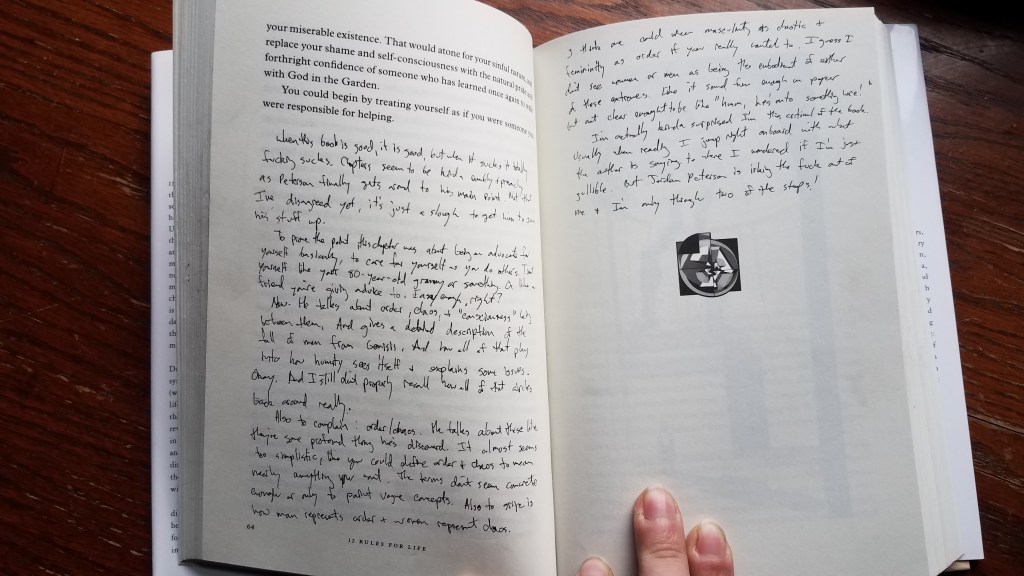 your miserable existence. That would atone for your sinful nature, and
replace your shame and self-consciousness with the natural pride and
forthright confidence of someone who has learned once again to walk
with God in the Garden.
You could begin by treating yourself as if you were someone you
were responsible for helping.
When this book is good, it is good, but when it sucks it totally
fucking sucks. Chapters seem to be kinda rambly + preachy
as Peterson finally gets around to his main point. Not that
I've disagreed yet, it's just a slough to get him to sum
his stuff up.
To prove the point this chapter was about being an advocate for
yourself basically, to care for yourself as you do others. Treat
yourself like your 80-year-old granny or something. Or like a
friend you're giving advice to. Easy enough, right?
Now. He talks about order, chaos, + "consciousness"
between them. And gives a detailed description of the
fall of man from Genesis. And how all of that play
into how humanity sees itself + explains some issues.
Okay. And I still didn't properly recall how all of that circles
back around really.
Also to complain: order/chaos. He talks about these like
they're some profound thing he's discovered. It almost seems
too simplistic, like you could define order + chaos to mean
nearly anything you want. The terms don't seem concrete
enough or only to paint vague concepts. Also to gripe is
how man represents order + women represent chaos.
64
12 RULES FOR LIFE
I think one could view masculinity as chaotic +
femininity as order if you really wanted to. I guess I
didn't see women or men as being the embodiment of either
of these extremes. Like it sounds fun enough on paper
but not clear enough to be like "hmm, he's onto something here!"
I'm actually kinda surprised I'm this critical of the book.
Usually when reading I jump right onboard with what
the author is saying to where I wondered if I'm just
gullible. But Jordan Peterson is irking the fuck out of
me + I'm only through two of the steps!